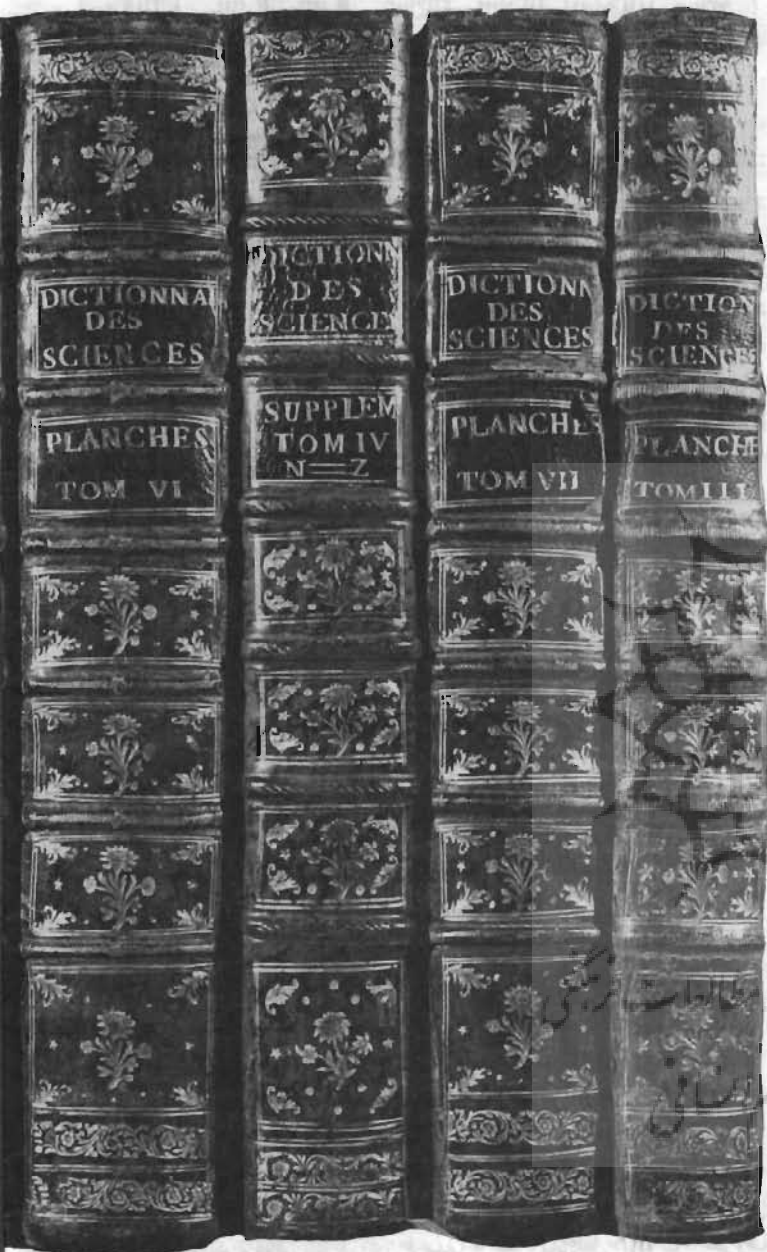 DICTIONNA
DES
SCIENCES
PLANCHES
TOM VI
DICTIONN
DES
SCIENCE
SUPPLEM
TOM IV
N=Z
DICTIONN
DES
SCIENCES
PLANCHES
TOM VII
DICTION
DES
SCIENCES
PLANCHE
TOM III
مطالعات فرهنگی